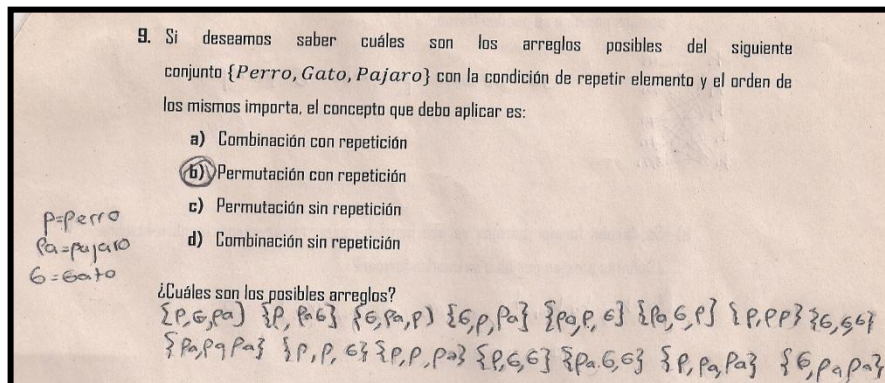 9. Si deseamos saber cuáles son los arreglos posibles del siguiente
conjunto {Perro, Gato, Pajaro} con la condición de repetir elemento y el orden de
los mismos importa, el concepto que debo aplicar es:
a) Combinación con repetición
b) Permutación con repetición
c) Permutación sin repetición
d) Combinación sin repetición
P=Perro
Pa=pajaro
G=Gato
¿Cuáles son los posibles arreglos?
{P,G,Pa} {P, PaG} {G,Pa,P} {G,P,Pa} {Pa,P, G} {Pa,G,P} {P,PP} {G,G,G}
{Pa,Pa Pa} {P,P, G} {P,P,Pa} {P,G,G} {Pa.G,G} {P, Pa,Pa} {G,Pa Pa}